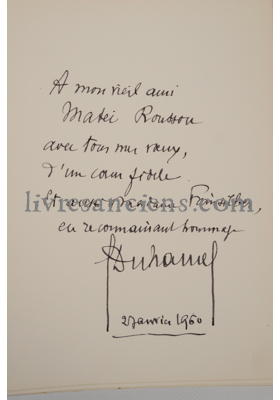 A mon vieil ami
Matei Roussou
avec tous mes vœux,
d'un cœur fidèle.
Et aussi Madame
en reconnaissant hommage
Duhamel
2 Janvier 1960
livresanciens.eu